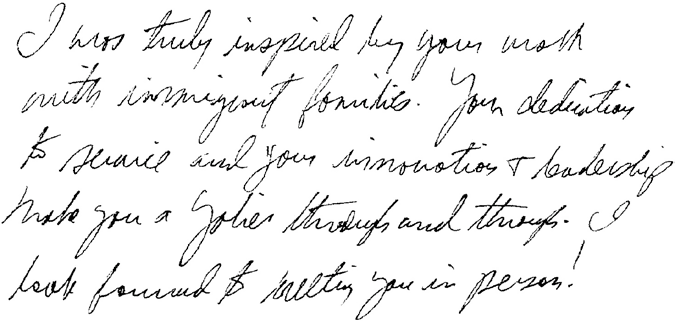 I was truly inspired by your work
with immigrant families. Your dedication
to service and your innovation + leadership
make you a through and through. I
look forward to meeting you in person!